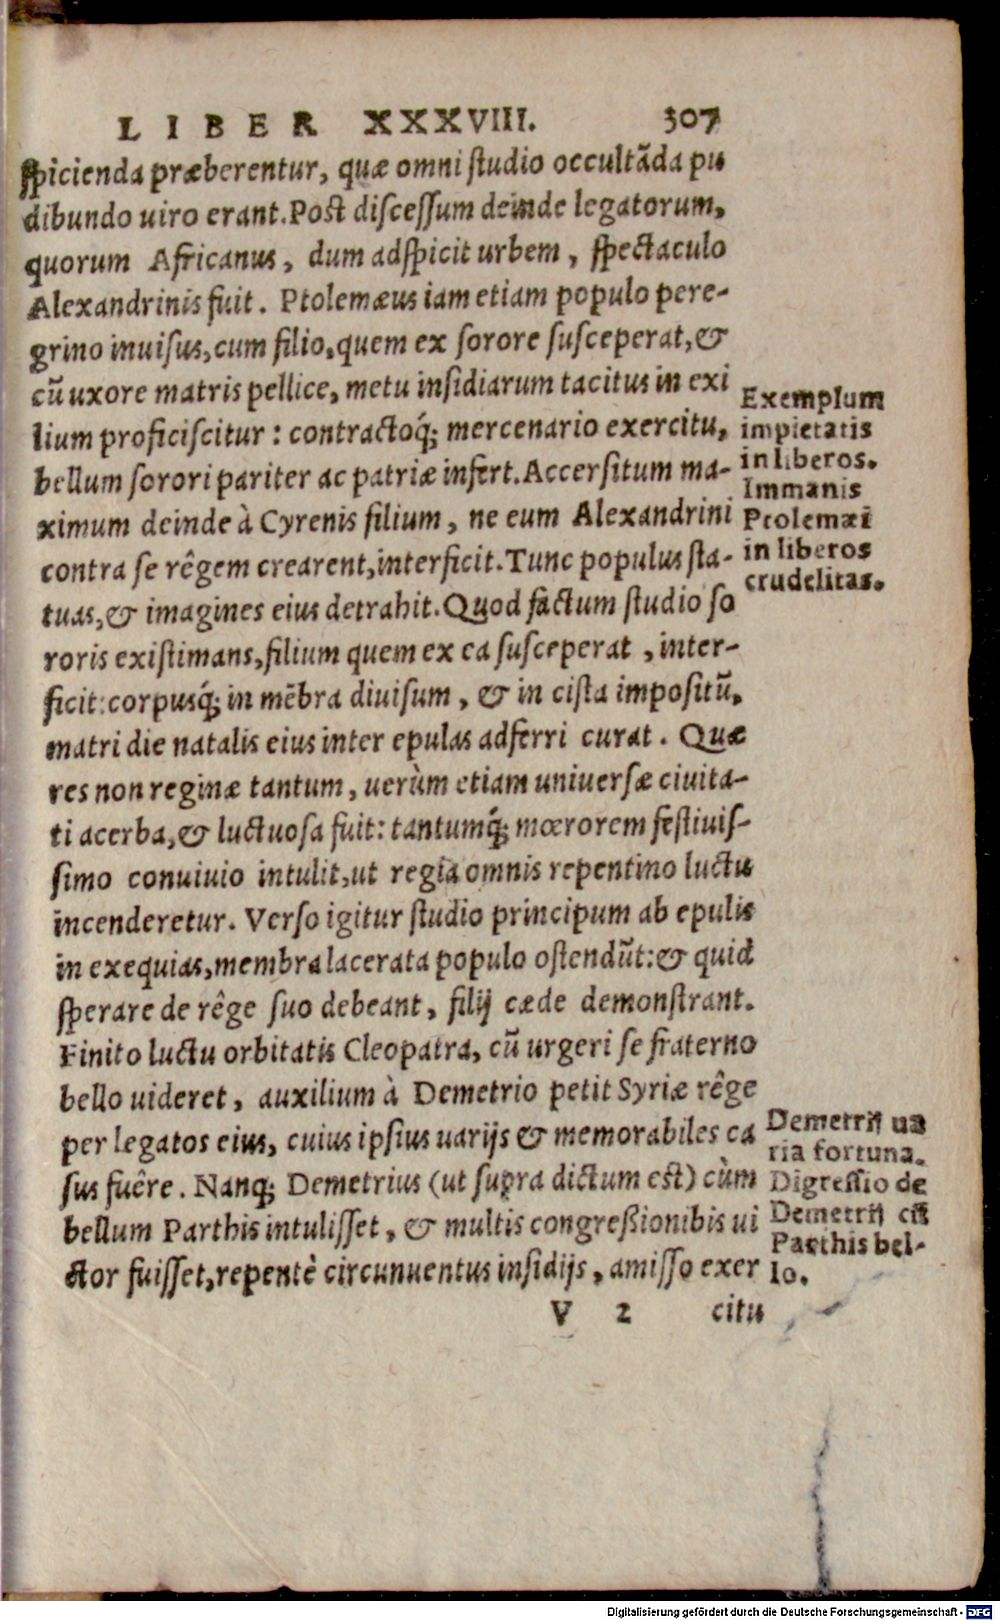 LIBER XXXVIII. 307
ſpicienda præberentur, quæ omni ſtudio occultãda pu
dibundo uiro erant. Poſt diſceſſum deinde legatorum,
quorum Africanus, dum adſpicit urbem, ſpectaculo
Alexandrinis fuit. Ptolemæus iam etiam populo pere-
grino inuiſus, cum filio, quem ex ſorore ſuſceperat, &
cũ uxore matris pellice, metu inſidiarum tacitus in exi
lium proficiſcitur: contractoq́; mercenario exercitu,
bellum ſorori pariter ac patriæ infert. Accerſitum ma-
ximum deinde à Cyrenis filium, ne eum Alexandrini
contra ſe rêgem crearent, interficit. Tunc populus ſta-
tuas, & imagines eius detrahit. Quod factum ſtudio ſo
roris exiſtimans, filium quem ex ea ſuſceperat, inter-
ficit: corpusq́; in mẽbra diuiſum, & in ciſta impoſitũ,
matri die natalis eius inter epulas adferri curat. Quæ
res non reginæ tantum, uerùm etiam uniuerſæ ciuita-
ti acerba, & luctuoſa fuit: tantumq́; mœrorem feſtiuiſ-
ſimo conuiuio intulit, ut regia omnis repentino luctu
incenderetur. Verſo igitur ſtudio principum ab epulis
in exequias, membra lacerata populo oſtendũt: & quid
ſperare de rêge ſuo debeant, filij cæde demonſtrant.
Finito luctu orbitatis Cleopatra, cũ urgeri ſe fraterno
bello uideret, auxilium à Demetrio petit Syriæ rêge
per legatos eius, cuius ipſius uarijs & memorabiles ca
ſus fuêre. Nanq; Demetrius (ut ſupra dictum eſt) cùm
bellum Parthis intuliſſet, & multis congreßionibis ui
ctor fuiſſet, repentè circunuentus inſidijs, amiſſo exer
V 2 citu
Exemplum
impietatis
in liberos.
Immanis
Ptolemæi
in liberos
crudelitas.
Demetrij ua
ria fortuna.
Digreſſio de
Demetrij cũ
Parthis bel-
lo.
Digitalisierung gefördert durch die Deutsche Forschungsgemeinschaft - DFG